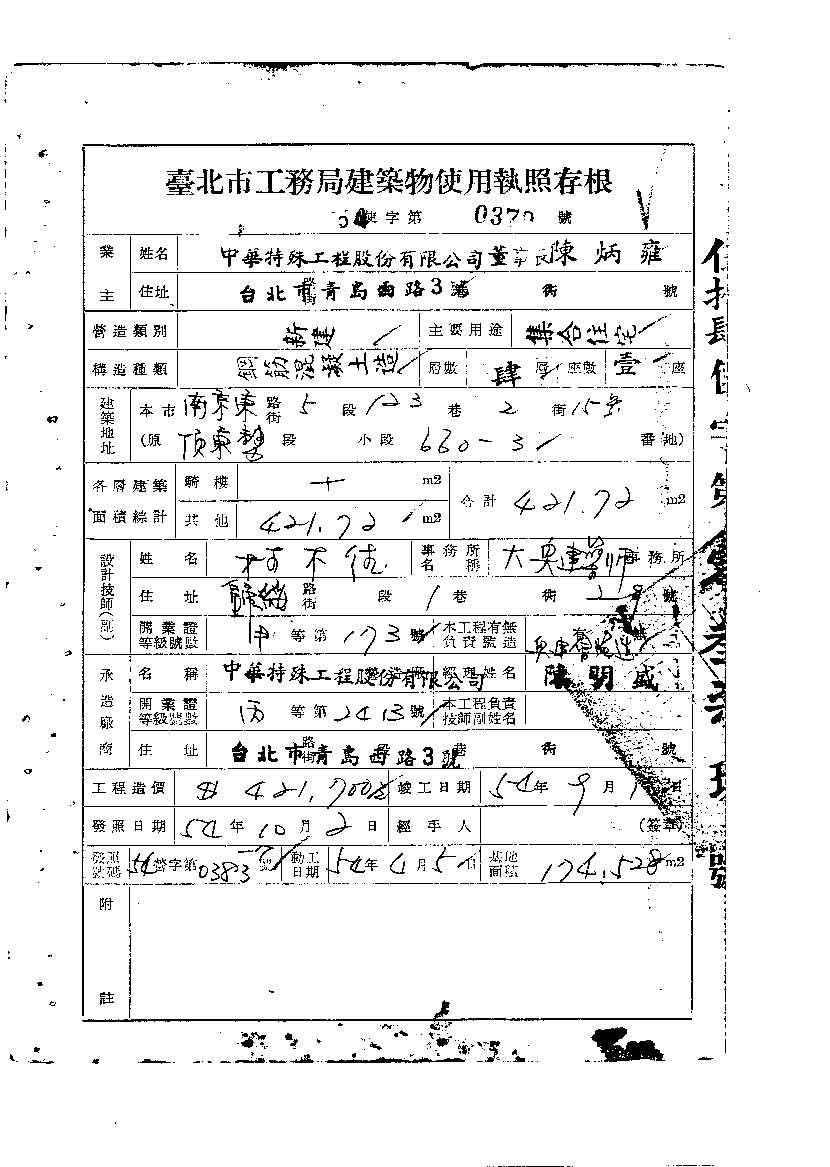 臺北市工務局建築物使用執照存根
54 使字第 0370 號
業主 姓名 中華特殊工程股份有限公司董事長陳炳雍
住址 台北市青島西路3號 路街 街 號
營造類別 新建 主要用途 集合住宅
構造種類 鋼筋混凝土造 層數 肆層 座數 壹座
建築地址 本市 南京東 路街 5 段 123 巷 2 街 15 號
(原 頂東勢 段 小段 660-31 番地)
各層建築面積綜計 騎樓 m2 合計 421.72 m2
其他 421.72 m2
設計技師(副) 姓名 事務所名稱 事務所
住址 路街 段 1 巷 街 28
開業證等級號數 甲 等第 173 號 本工程有無負責監造
承造廠商 名稱 中華特殊工程股份有限公司 經理姓名 陳明盛
開業證等級號數 丙 等第 2413 號 本工程負責技師副姓名
住址 台北市青島西路3號 路街 巷 街 號
工程造價 $ 421,700 竣工日期 54 年 9 月 1 日
發照日期 54 年 10 月 2 日 經手人 (簽章)
發照號碼 54 營字第 0383 號 動工日期 54 年 4 月 5 日 基地面積 174.528 m2
附註